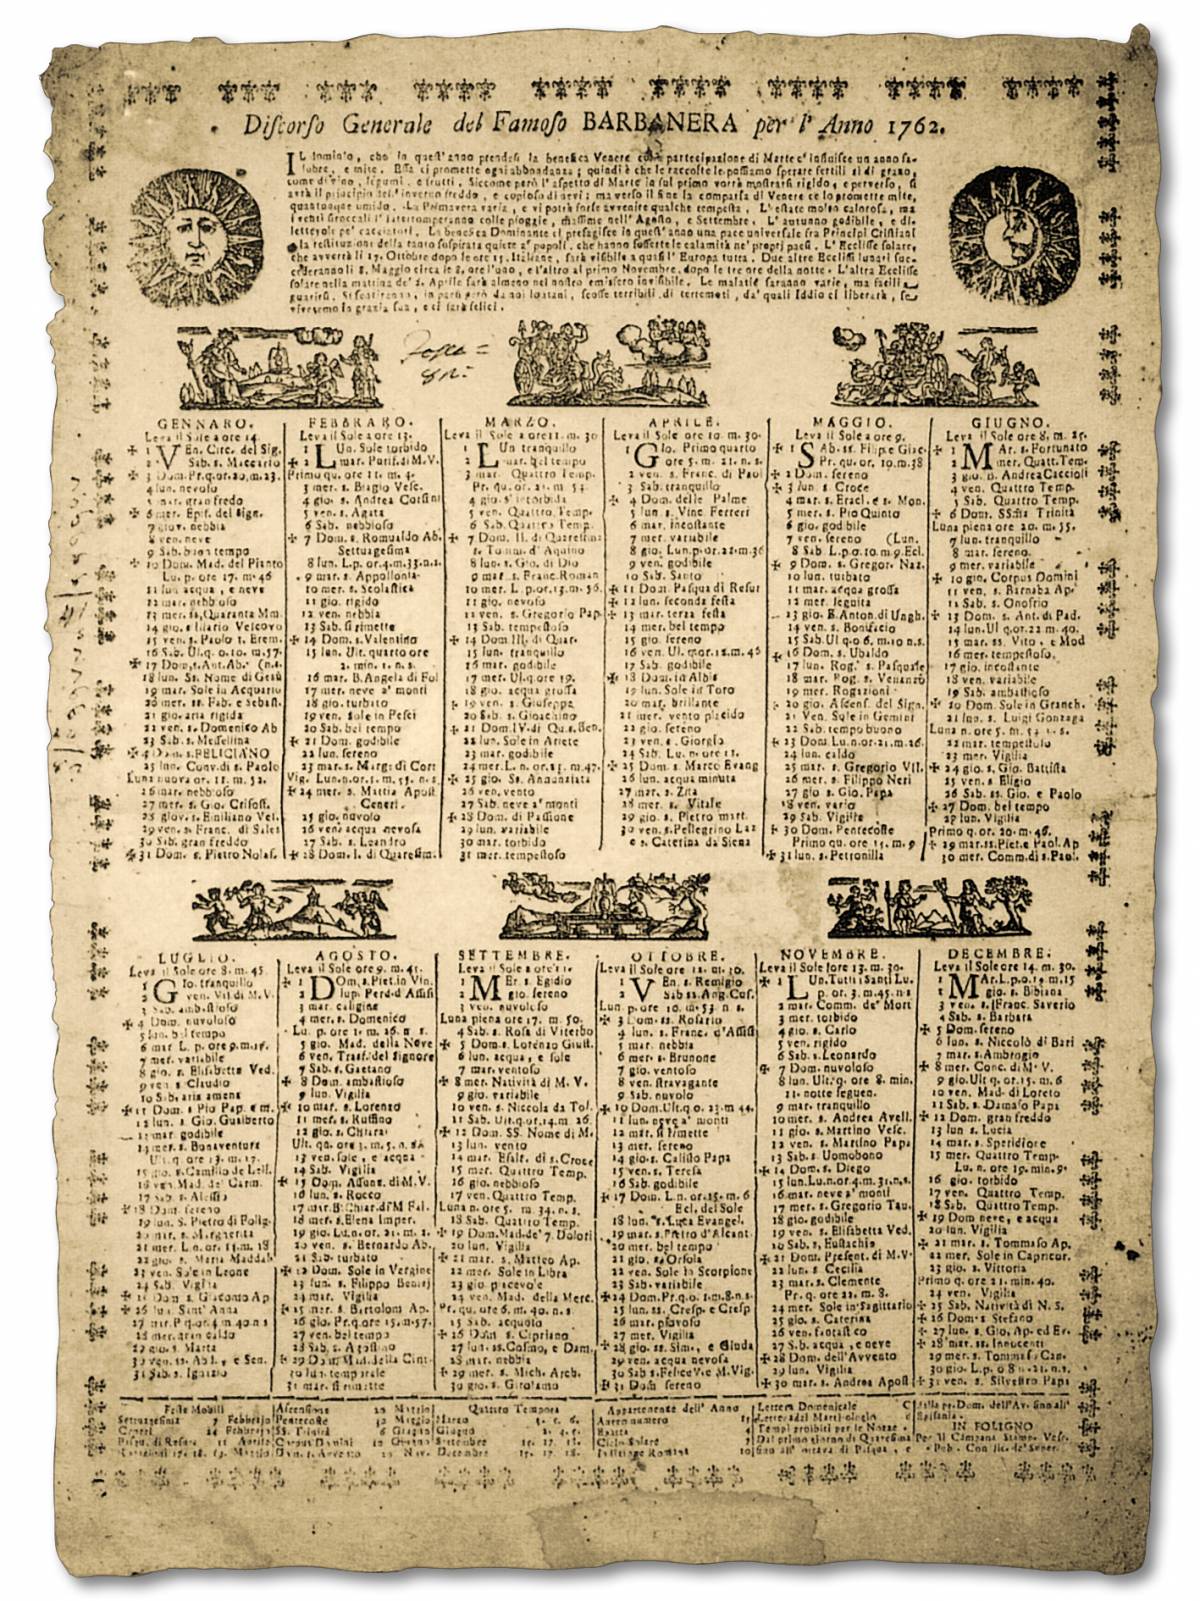 Discorso Generale del Famoso BARBANERA per l'Anno 1762.
IL dominio, che in quest'anno prendesi la benefica Venere colla partecipazione di Marte c'influisce un anno sa-
lubre, e mite. Essa ci promette ogni abbondanza; quindi è che le raccolte le possiamo sperare fertili sì di grano,
come di vino, legumi, e frutti. Siccome però l'aspetto di Marte in sul primo vorrà mostrarsi rigido, e perverso, sì
sarà il principio dell'inverno freddo, e copioso di nevi; ma verso il fine la comparsa di Venere ce lo promette mite,
quantunque umido. La Primavera varia, e vi potrà forse avvenire qualche tempesta. L'estate molto calorosa, ma
i venti siroccali l'interromperanno colle pioggie, massime nell'Agosto, e Settembre. L'autunno godibile, e di-
lettevole pe' cacciatori. La benefica Dominante ci presagisce in quest'anno una pace universale fra Principi Cristiani
la restituzione della tanto sospirata quiete a' popoli, che hanno sofferte le calamità ne' propri paesi. L'Eclisse solare,
che avverrà li 17. Ottobre dopo le ore 15. Italiane, sarà visibile a quasi l'Europa tutta. Due altre Eclissi lunari suc-
cederanno li 8. Maggio circa le 8. ore l'uno, e l'altro al primo Novembre, dopo le tre ore della notte. L'altra Eclisse
solare nella mattina de' Aprile sarà almeno nel nostro emisfero invisibile. Le malatie saranno varie, ma facili a
guarirsi. Si sentiranno, in parti però da noi lontani, scosse terribili di terremoti, da' quali Iddio ci libererà, se
viveremo in grazia sua, e ci farà felici.
GENNARO.
Leva il Sole a ore 14.
1 VEn. Circ. del Sig.
2 Sab. s. Maccario
3 Dom. Pr.q.or.20.m.23.
4 lun. nevolo
5 mar. gran fredo
6 mer. Epif. del Sign.
7 giov. nebbia
8 ven. neve
9 Sab. buon tempo
10 Dom. Mad. del Pianto
Lu. p. ore 17. m. 46
11 lun acqua, e neve
12 mar. nebbioso
13 mer. Quaranta Mm.
14 gio. s Ilario Vescovo
15 ven. s. Paolo 1. Erem.
16 Sab. Ul.q.o.10. m.57.
17 Dom. s. Ant. Ab. (n.s.
18 lun. Ss. Nome di Gesù
19 mar. Sole in Acquario
20 mer. ss. Fab. e Sebast.
21 gio. aria rigida
22 ven. s. Domenico Ab
23 Sab. s. Messellina
24 Dom. s. FELICIANO
25 lun. Conv. di s. Paolo
Luna nuova or. 11. m. 52.
26 mar. nebbioso
27 mer. s. Gio. Crisost.
28 giov. s. Emiliano Vel.
29 ven. s. Franc. di Sales
30 Sab. gran freddo
31 Dom. s. Pietro Nolas.
FEBBRARO.
Leva il Sole a ore 13.
1 LUn. Sole torbido
2 mar. Purif. di M. V.
Primo qu. ore 11. m. 3.
3 mer. s. Biagio Vesc.
4 gio. s. Andrea Corsini
5 ven. s. Agata
6 Sab. nebbioso
7 Dom. s. Romualdo Ab.
Settuagesima
8 lun. L.p. or.4.m.33.n.s.
9 mar. s. Appollonia
10 mer. s. Scolastica
11 gio. rigido
12 ven. nebbia
13 Sab. si rimette
14 Dom. s. Valentino
15 lun. Ult. quarto ore
2. min. 1. n. s.
16 mar. B. Angela di Fol
17 mer. neve a' monti
18 gio. turbato
19 ven. Sole in Pesci
20 Sab. bel tempo
21 Dom. godibile
22 lun. sereno
23 mar. s. Marg. di Cort
Vig. Lun.n.or.1.m.55. n. s.
24 mer. s. Mattia Apost.
Ceneri.
25 gio. nuvolo
26 ven. acqua nevosa
27 Sab. s. Leandro
28 Dom. I. di Quaresim.
MARZO.
Leva il Sole a ore 11. m. 30
1 LUn tranquillo
2 mar. bel tempo
3 mer. Quattro Temp.
Pr. qu. or. 21. m. 53
4 gio. s'intorbida
5 ven. Quattro Temp.
6 Sab. Quattro Temp.
7 Dom. II. di Quaresima
s. Tomm. d'Aquino
8 lun. s. Gio. di Dio
9 mar s. Franc. Roman
10 mer. L.p.or.13.m.36.
11 gio. nevoso
12 ven. s. Gregorio Pap.
13 Sab. tempestoso
14 Dom III. di Quar.
15 lun. tranquillo
16 mar. godibile
17 mer. Ul.q. ore 19.
18 gio. acqua grossa
19 ven. s. Giuseppe
20 Sab. s. Gioachino
21 Dom.IV.di Qu.s.Ben.
22 lun. Sole in Ariete
23 mar. godibile
24 mer. L. n. or. 15. m.47.
25 gio. Ss. Annunziata
26 ven. vento
27 Sab. neve a' monti
28 Dom. di Passione
29 lun. variabile
30 mar. torbido
31 mer. tempestoso
APRILE.
Leva il Sole ore 10. m. 30.
1 GIo. Primo quarto
ore 5. m. 21. n. s.
2 ven. s. Franc. di Paol
3 Sab. tranquillo
4 Dom. delle Palme
5 lun. s. Vinc. Ferreri
6 mar. incostante
7 mer. variabile
8 gio. Lun.p.or.22.m.36
9 ven. godibile
10 Sab. Santo
11 Dom. Pasqua di Resur
12 lun. seconda festa
13 mar. terza festa
14 mer. bel tempo
15 gio. sereno
16 ven. Ul. qu.or.12.m.45
17 Sab. godibile
18 Dom. in Albis
19 lun. Sole in Toro
20 mar. brillante
21 mer. vento placido
22 gio. sereno
23 ven. s. Giorgio
24 Sab. Lu. n. ore 11.
25 Dom. s. Marco Evang
26 lun. acqua minuta
27 mar. s. Zita
28 mer. s. Vitale
29 gio. s. Pietro mart.
30 ven. s. Pellegrino Laz
e s. Caterina da Siena
MAGGIO.
Leva il Sole a ore 9.
1 SAb. ss. Filip. e Giac.
Pr. qu. or. 10. m 38
2 Dom. sereno
3 lun. s. Croce
4 mar. s. Eracl. e s. Mon.
5 mer. s. Pio Quinto
6 gio. godibile
7 ven. sereno (Lun.
8 Sab L.p.o.10.m.9.Ecl.
9 Dom. s. Gregor. Naz.
10 lun. turbato
11 mar. acqua grossa
12 mer. seguita
13 gio. B. Anton. di Ungh.
14 ven. s. Bonifacio
15 Sab. Ul q.o 6. m.10 n.s.
16 Dom. s. Ubaldo
17 lun. Rog. s. Pasquale
18 mar. Rog. s. Venanzo
19 mer. Rogazioni
20 gio. Ascens. del Sign.
21 Ven. Sole in Gemini
22 Sab. tempo buono
23 Dom. Lu. n.or.21.m.26.
24 lun. caldo
25 mar. s. Gregorio VII.
26 mer. s. Filippo Neri
27 gio s. Gio. Papa
28 ven. vario
29 Sab. Vigilia
30 Dom. Pentecoste
Primo qu. ore 15. m. 9
31 lun. s. Petronilla
GIUGNO.
Leva il Sole ore 8. m. 25.
1 MAr. s. Fortunato
2 mer. Quatt. Tem.
3 gio. B. Andrea Caccioli
4 ven. Quattro Temp.
5 Sab. Quattro Temp.
6 Dom. SS.ma Trinità
Luna piena ore 20. m. 55.
7 lun. tranquillo
8 mar. sereno
9 mer. variabile
10 gio. Corpus Domini
11 ven. s. Barnaba Ap.
12 Sab. s. Onofrio
13 Dom. s. Ant. di Pad.
14 lun. Ul q.or. 22 m. 40.
15 mar. ss. Vito, e Mod
16 mer. tempestoso,
17 gio. incostante
18 ven. variabile
19 Sab. ambastioso
20 Dom. Sole in Granch.
21 lun. s. Luigi Gonzaga
Luna n. ore 5. m.
22 mar. tempestuso
23 mer. Vigilia
24 gio. s. Gio. Battista
25 ven. s. Eligio
26 Sab. ss. Gio. e Paolo
27 Dom. bel tempo
28 lun. Vigilia
Primo q. or. 20. m. 46.
29 mar. ss. Piet. e Paol. Ap
30 mer. Comm. di s. Paol.
LUGLIO.
Leva il Sole ore 8. m. 45.
1 GIo. tranquillo
2 ven. Vis. di M. V.
3 Sab. ambastioso
4 Dom. nuvoloso
5 lun. bel tempo
6 mar L. p. ore 9. m.
7 mer. variabile
8 gio. s. Elisabetta Ved.
9 ven s Claudio
10 Sab. aria amena
11 Dom. s Pio Pap. e m.
12 lun. s. Gio. Gualberto
13 mar. godibile
14 mer. s. Bonaventura
Ul. q. ore 13. m. 17.
15 gio. s. Camillo de Lell.
16 ven. Mad. de' Carm.
17 Sab. s. Alessio
18 Dom. sereno
19 lun. S. Pietro di Polig.
20 mar. s. Margherita
21 mer. L. n. or. 15. m. 18
22 gio. s. Maria Maddal.
23 ven. Sole in Leone
24 Sab. Vigilia
25 Dom s. Giacomo Ap
26 lun. Sant' Anna
27 mar. P q.or.4 m.40 n s
28 mer. gran caldo
29 gio. s. Marta
30 ven. ss. Abd., e Sen.
31 Sab. s. Ignazio
AGOSTO.
Leva il Sole ore 9. m. 45.
1 DOm.s. Piet. in Vin.
2 lun. Perd. d'Assisi
3 mar. caligine
4 mer. s. Domenico
Lu. p. ore 1. m. 26. n s.
5 gio. Mad. della Neve
6 ven. Trasf. del Signore
7 Sab. s. Gaetano
8 Dom. ambastioso
9 lun. Vigilia
10 mar. s. Lorenzo
11 mer. s. Ruffino
12 gio. s. Chiara
13 ven. sole, e acqua
14 Sab. Vigilia
15 Dom. Assunz. di M. V.
16 lun. s. Rocco
17 mar. B. Chiar. di M Fal.
18 mer. s. Elena Imper.
19 gio. Lu. n. or. 21. m. 1.
20 ven. s. Bernardo Ab.
21 Sab. turbato
22 Dom. Sole in Vergine
23 lun. s. Filippo Benizj
24 mar. Vigilia
25 mer. s. Bartolom Ap.
26 gio. Pr. q.ore 15.m.57.
27 ven. bel tempo
28 Sab. s. Agostino
29 Dom Mad. della Cint.
30 lun. temporale
31 mar. si rimette
SETTEMBRE.
1 MEr. s. Egidio
2 gio. sereno
3 ven. nuvoloso
Luna piena ore 17. m. 50.
4 Sab. s. Rosa di Viterbo
5 Dom. s. Lorenzo Giust.
6 lun. acqua, e sole
7 mar. ventoso
8 mer. Natività di M. V.
9 gio. variabile
10 ven. s. Niccola da Tol.
11 Sab. Ult. q.or.14.m 26.
12 Dom. SS. Nome di M.
13 lun. vento
14 mar. Esalt. di s. Croce
15 mer. Quattro Temp.
16 gio. nebbioso
17 ven. Quattro Temp.
Luna n. ore 5. m. 34. n. s.
18 Sab. Quattro Temp.
19 Dom. Mad. de' 7. Dolori
20 lun. Vigilia
21 mar. s. Matteo Ap.
22 mer. Sole in Libra
23 gio piacevole
24 ven. Mad. della Merc.
Pr. qu. ore 6. m. 40. n. s
25 Sab. acquolo
26 Dom s. Cipriano
27 lun. ss. Cosmo, e Dam.
28 mar. nebbia
29 mer. s. Mich. Arch.
30 gio. s. Girolamo
OTTOBRE.
Leva il Sole ore 12. m. 30.
1 VEn. s. Remigio
2 Sab ss. Ang. Cus.
Lun. p. ore 10. m. 53. n s
3 Dom. ss. Rosario
4 lun. s. Franc. d'Assisi
5 mar. nebbia
6 mer. s. Brunone
7 gio. ventoso
8 ven. stravagante
9 Sab. nuvolo
10 Dom. Ult. q o. 23. m 44.
11 lun. neve a' monti
12 mar. si rimette
13 mer. sereno
14 gio. s. Calisto Papa
15 ven. s. Teresa
16 Sab. godibile
17 Dom. L. n.or.15. m. 6
Ecl. del Sole
18 lun. s. Luca Evangel.
19 mar. s Pietro d'Alcant.
20 mer. bel tempo
21 gio. s. Orsola
22 ven. Sole in Scorpione
23 Sab. variabile
24 Dom. Pr.q.o. 1.m.8.n.s.
25 lun. ss. Cresp. e Cresp
26 mar. piovoso
27 mer. Vigilia
28 gio. ss. Sim., e Giuda
29 ven. acqua nevosa
30 Sab s. Felice V. e M. Vig.
31 Dom sereno
NOVEMBRE.
Leva il Sole ore 13. m. 30.
1 LUn. Tutti i Santi Lu.
p. or. 3. m 45. n s
2 mar. Comm. de' Mort
3 mer. torbido
4 gio. s. Carlo
5 ven. rigido
6 Sab. s. Leonardo
7 Dom. nuvoloso
8 lun. Ult. q. ore 8. min.
11. notte seguen.
9 mar. tranquillo
10 mer. s. Andrea Avell.
11 gio. s. Martino Vesc.
12 ven. s. Martino Papa
13 Sab. s. Uomobono
14 Dom. s. Diego
15 lun. Lu.n.or.4.m. 31.n.s.
16 mar. neve a' monti
17 mer. s. Gregorio Tau.
18 gio. godibile
19 ven. s. Elisabetta Ved.
20 Sab. s. Eustachio
21 Dom. Present. di M. V.
22 lun. s. Cecilia
23 mar. s. Clemente
Pr. q. ore 21. m. 8.
24 mer. Sole in Sagittario
25 gio. s. Caterina
26 ven. fantastico
27 S.b. acqua, e neve
28 Dom. dell'Avvento
29 lun. Vigilia
30 mar. s. Andrea Apost
DECEMBRE.
Leva il Sole ore 14. m. 30.
1 MEr. L. p. o. 14 m. 15
2 gio. s. Bibiana
3 ven. s. Franc. Saverio
4 Sab. s. Barbara
5 Dom. sereno
6 lun. s. Niccolò di Bari
7 mar. s. Ambrogio
8 mer. Conc. di M. V.
9 gio. Ult. q.or. 15. m. 6
10 ven. Mad. di Loreto
11 Sab. s. Damaso Papa
12 Dom. gran freddo
13 lun. s. Lucia
14 mar. s. Speridiore
15 mer. Quattro Temp.
Lu. n. ore 19. min. 9.
16 gio. torbido
17 ven. Quattro Temp.
18 Sab. Quattro Temp.
19 Dom neve, e acqua
20 lun. Vigilia
21 mar. s. Tommaso Ap.
22 mer. Sole in Capricor.
23 gio. s. Vittoria
Primo q. ore 21. min. 40.
24 ven. Vigilia
25 Sab. Natività di N. S.
26 Dom. s Stefano
27 lun. s. Gio. Ap. ed Ev.
28 mar. ss. Innocenti
29 mer. s. Tommas. Can.
30 gio. L. p. o 8 m. 21. n. s.
31 ven. s. Silvestro Papa
Feste Mobili
Settuagesima 7 Febbrajo
Ceneri 24 Febbrajo
Pasqu. di Resurr. 11 Aprile
Rogazioni 17. 18. 19. Maggio
Ascensione 20 Maggio
Pentecoste 30 Maggio
SS. Trinità 6 Giugno
Corpus Domini 10 Giugno
Dom. 1. Avvento 28 Nov.
Quattro Tempora
Marzo 3. 5. 6.
Giugno 2. 4. 5.
Settembre 15. 17. 18.
Decembre 15. 17. 18.
Appartenente dell' Anno
Aureo numero 15
Epatta
Ciclo Solare
Indizione Romana 10
Lettera Domenicale C
Lettera del Martirologio
Tempi proibiti per le Nozze
Dal primo giorno di Quaresima
sino all' ottava di Pasqua, e
dalla pr. Dom. dell'Av. sino all'
Epifania.
IN FOLIGNO
Per il Campana Stamp. Vesc.
e Pub. Con lic. de' Super.